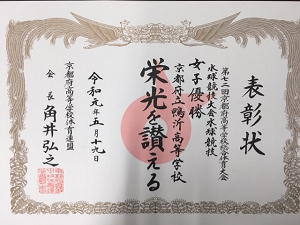 表彰状
第七二回京都府高等学校総合体育大会
水球競技大会水球競技
女子優勝
京都府立鴨沂高等学校
栄光を讃える
令和元年五月十九日
京都府高等学校体育連盟
会長 角井弘之